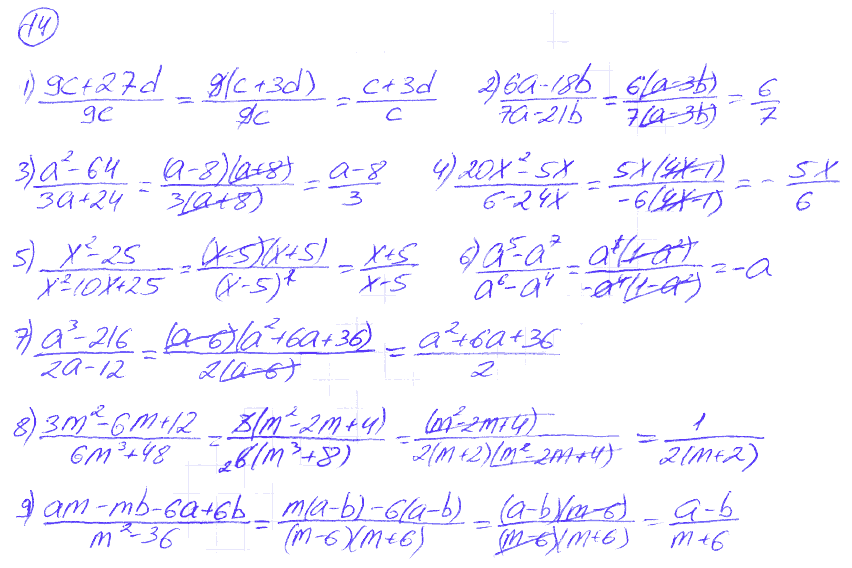 14
1) (9c+27d)/(9c) = (9(c+3d))/(9c) = (c+3d)/c 2) (6a-18b)/(7a-21b) = (6(a-3b))/(7(a-3b)) = 6/7
3) (a²-64)/(3a+24) = ((a-8)(a+8))/(3(a+8)) = (a-8)/3 4) (20x²-5x)/(6-24x) = (5x(4x-1))/(-6(4x-1)) = - 5x/6
5) (x²-25)/(x²-10x+25) = ((x-5)(x+5))/((x-5)²) = (x+5)/(x-5) 6) (a⁵-a⁷)/(a⁶-a⁴) = (a⁵(1-a²))/(-a⁴(1-a²)) = -a
7) (a³-216)/(2a-12) = ((a-6)(a²+6a+36))/(2(a-6)) = (a²+6a+36)/2
8) (3m²-6m+12)/(6m³+48) = (3(m²-2m+4))/(₂6(m³+8)) = (m²-2m+4)/(2(m+2)(m²-2m+4)) = 1/(2(m+2))
9) (am-mb-6a+6b)/(m²-36) = (m(a-b)-6(a-b))/((m-6)(m+6)) = ((a-b)(m-6))/((m-6)(m+6)) = (a-b)/(m+6)